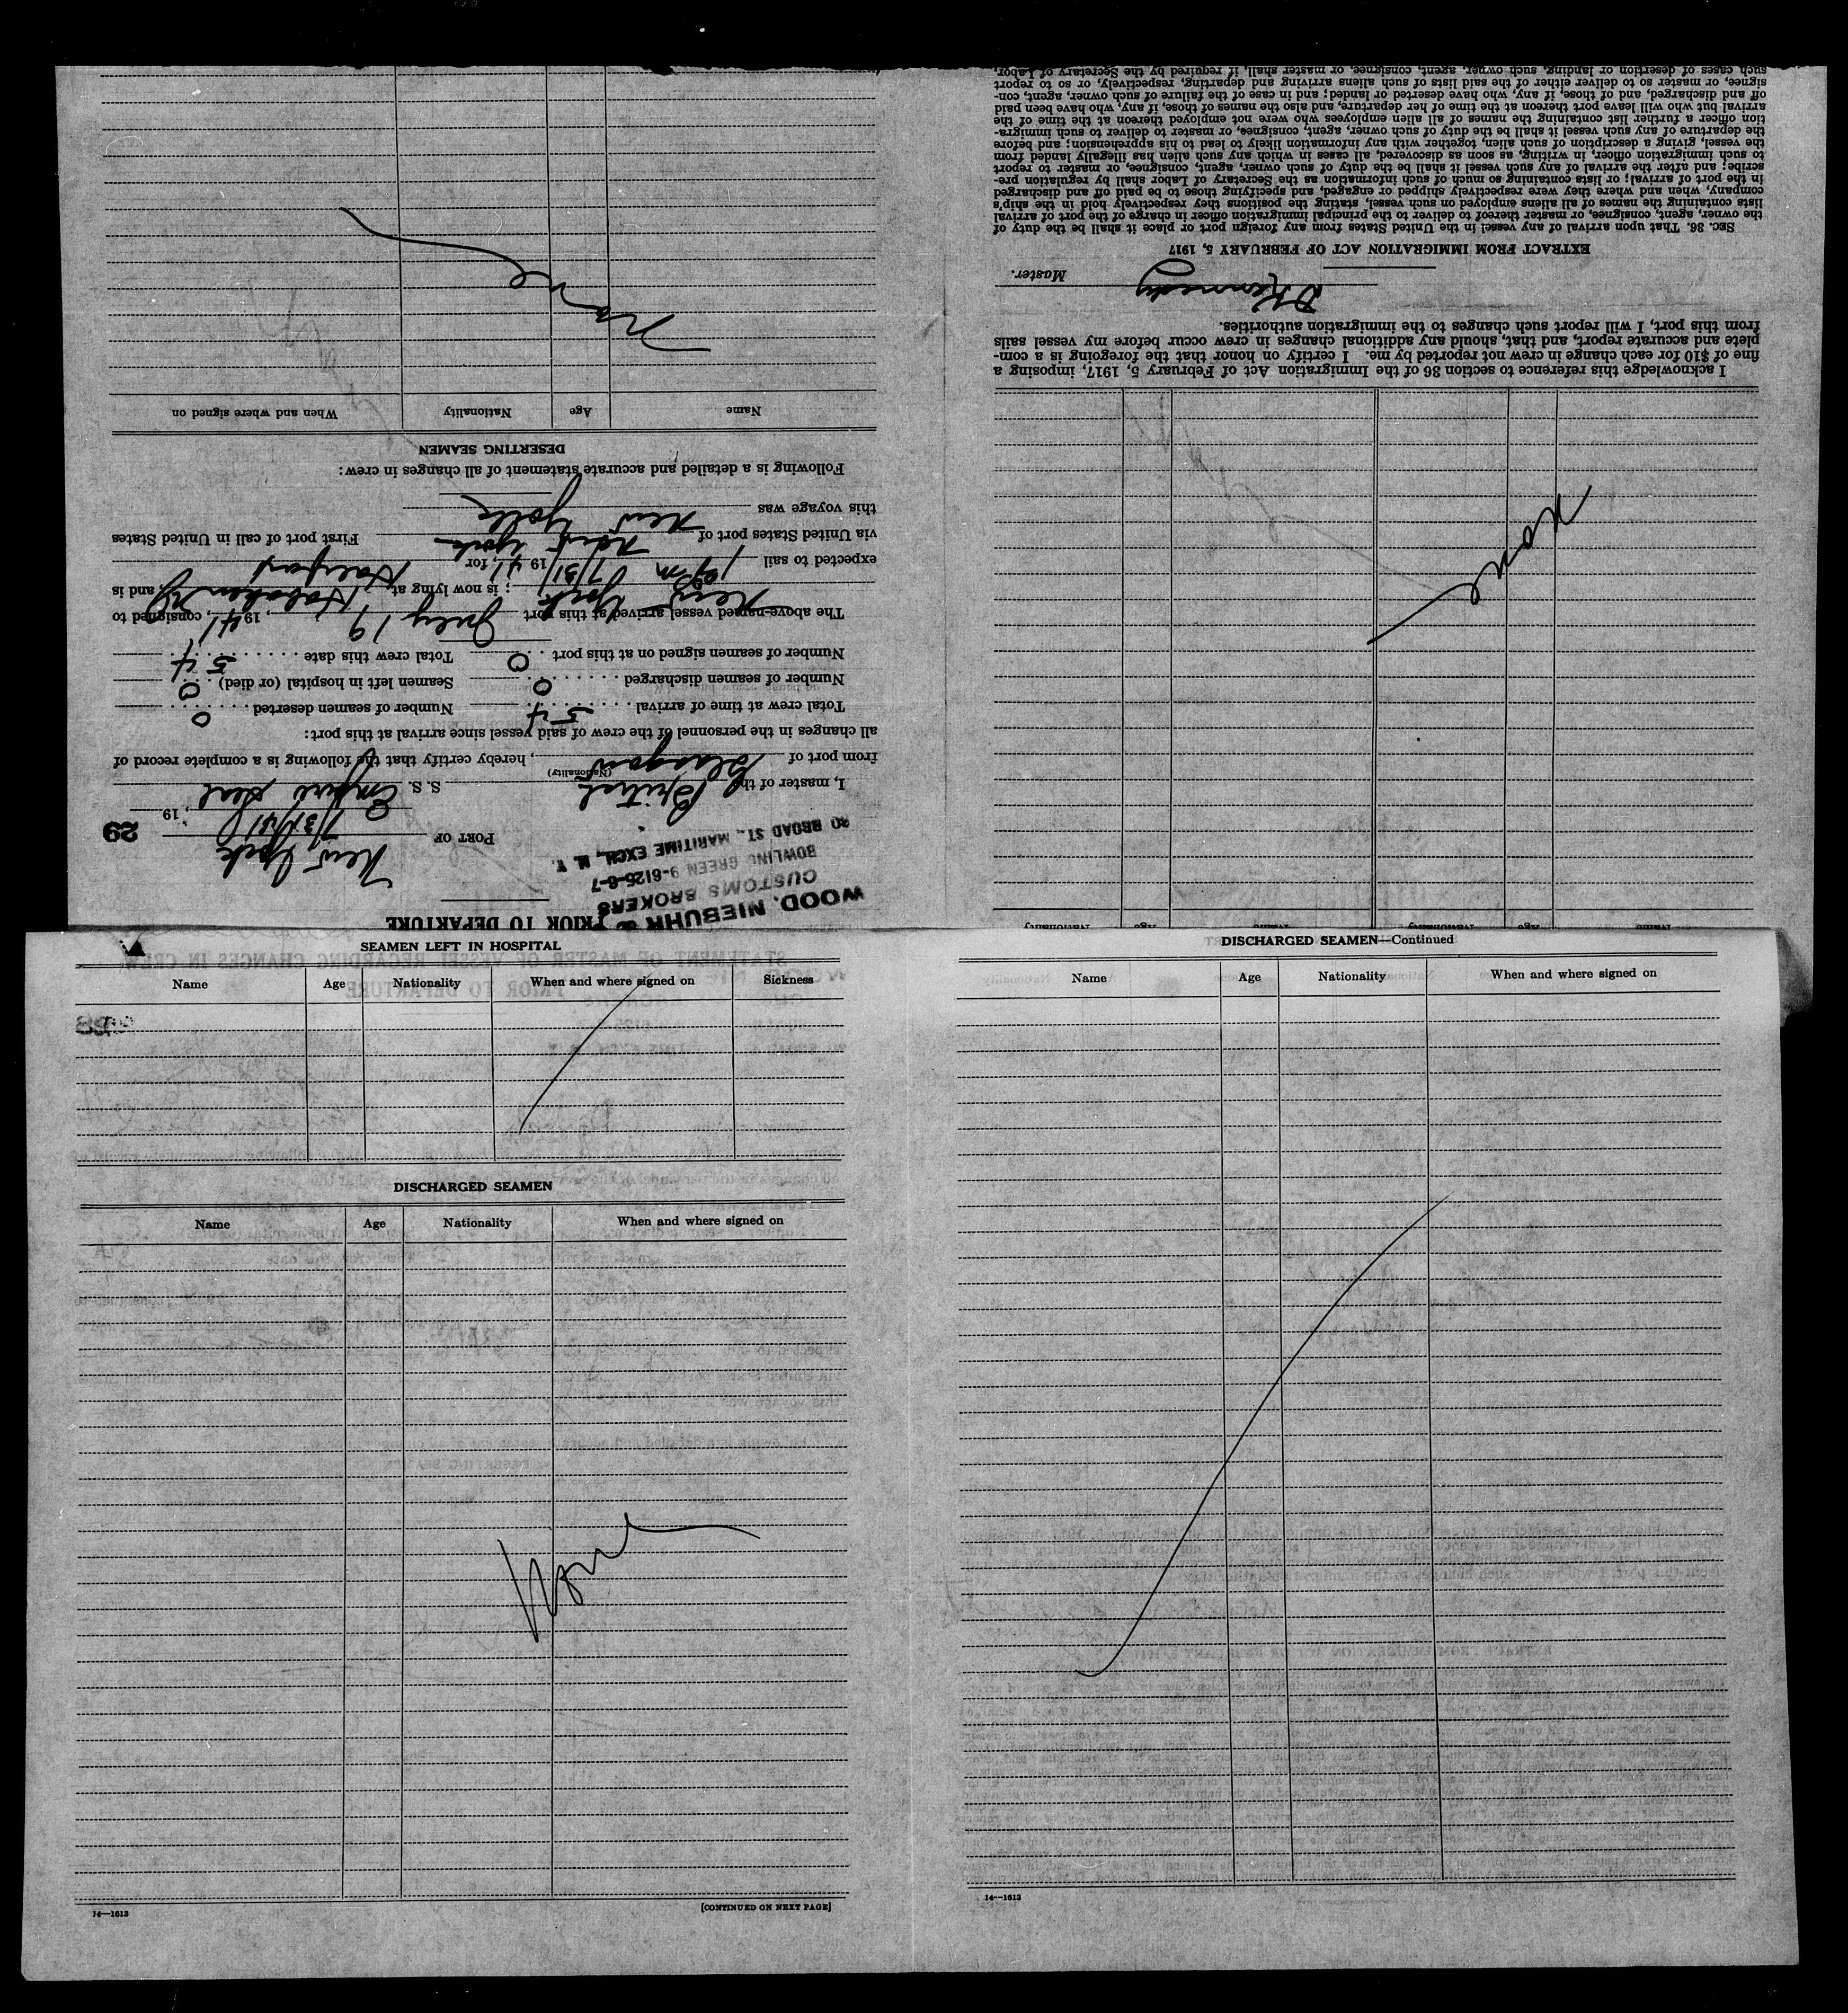 PRIOR TO DEPARTURE
WOOD, NIEBUHR &
CUSTOMS BROKERS
BOWLING GREEN 9-6125-6-7
80 BROAD ST., MARITIME EXCH., N. Y.
New York
PORT OF
7/31/41, 19
29
I, master of the British S. S. Empire Seal
(Nationality)
from port of Glasgow, hereby certify that the following is a complete record of
all changes in the personnel of the crew of said vessel since arrival at this port:
Total crew at time of arrival 54 Number of seamen deserted 0
Number of seamen discharged 0 Seamen left in hospital (or died) 0
Number of seamen signed on at this port 0 Total crew this date 54
The above-named vessel arrived at this port July 19, 1941, consigned to
New York; is now lying at Hoboken NJ and is
expected to sail 7/31/1941 for Halifax
via United States port of New York First port of call in United States
this voyage was New York
Following is a detailed and accurate statement of all changes in crew:
DESERTING SEAMEN
Name Age Nationality When and where signed on
None
Name Age Nationality Name Age Nationality
None
I acknowledge this reference to section 36 of the Immigration Act of February 5, 1917, imposing a
fine of $10 for each change in crew not reported by me. I certify on honor that the foregoing is a com-
plete and accurate report, and that, should any additional changes in crew occur before my vessel sails
from this port, I will report such changes to the immigration authorities.
D Kennedy
Master.
EXTRACT FROM IMMIGRATION ACT OF FEBRUARY 5, 1917
SEC. 36. That upon arrival of any vessel in the United States from any foreign port or place it shall be the duty of
the owner, agent, consignee, or master thereof to deliver to the principal immigration officer in charge of the port of arrival
lists containing the names of all aliens employed on such vessel, stating the positions they respectively hold in the ship's
company, when and where they were respectively shipped or engaged, and specifying those to be paid off and discharged
in the port of arrival; or lists containing so much of such information as the Secretary of Labor shall by regulation pre-
scribe; and after the arrival of any such vessel it shall be the duty of such owner, agent, consignee, or master to report
to such immigration officer, in writing, as soon as discovered, all cases in which any such alien has illegally landed from
the vessel, giving a description of such alien, together with any information likely to lead to his apprehension; and before
the departure of any such vessel it shall be the duty of such owner, agent, consignee, or master to deliver to such immigra-
tion officer a further list containing the names of all alien employees who were not employed thereon at the time of the
arrival but who will leave port thereon at the time of her departure, and also the names of those, if any, who have been paid
off and discharged, and of those, if any, who have deserted or landed; and in case of the failure of such owner, agent, con-
signee, or master so to deliver either of the said lists of such aliens arriving and departing, respectively, or so to report
such cases of desertion or landing, such owner, agent, consignee, or master shall, if required by the Secretary of Labor,
SEAMEN LEFT IN HOSPITAL
Name Age Nationality When and where signed on Sickness
DISCHARGED SEAMEN
Name Age Nationality When and where signed on
None
14—1613
[CONTINUED ON NEXT PAGE]
DISCHARGED SEAMEN—Continued
Name Age Nationality When and where signed on
14—1613